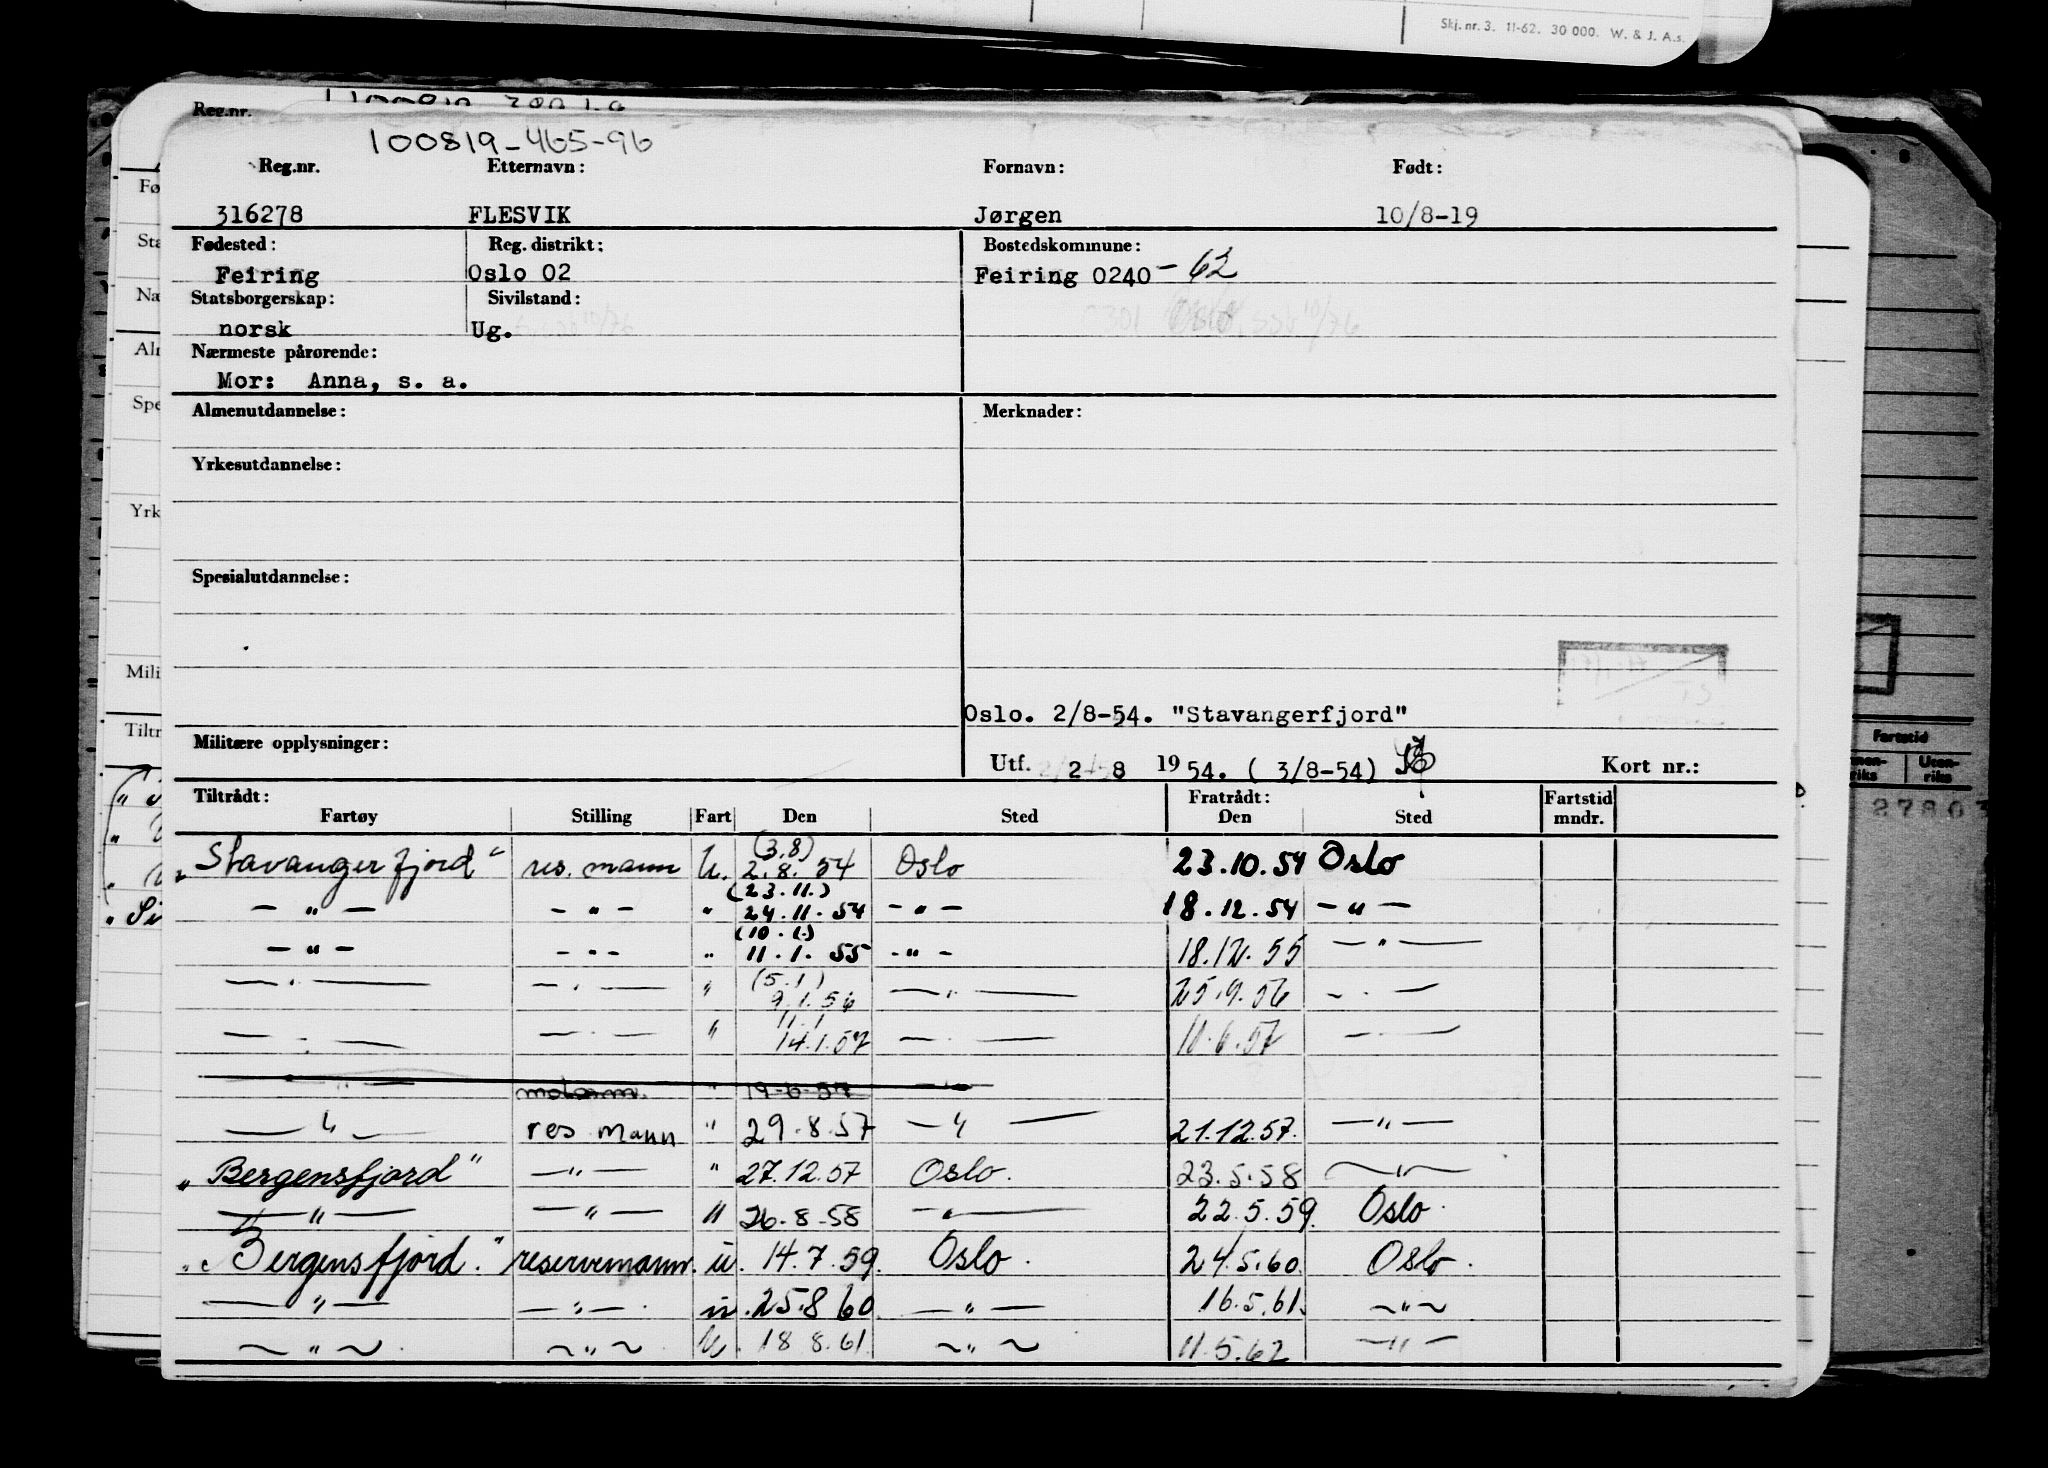 Skj. nr. 3. 11-62. 30 000. W. & J. A.s.
Reg.nr.
100819-465-96
Reg.nr. Etternavn: Fornavn: Født:
316278 FLESVIK Jørgen 10/8-19
Fødested: Reg. distrikt: Bostedskommune:
Feiring Oslo 02 Feiring 0240 - 62
Statsborgerskap: Sivilstand:
norsk Ug.
Nærmeste pårørende:
Mor: Anna, s. a.
Almenutdannelse: Merknader:
Yrkesutdannelse:
Spesialutdannelse:
Oslo. 2/8-54. "Stavangerfjord"
Militære opplysninger:
Utf. 2 8 1954. ( 3/8-54) Kort nr.:
Tiltrådt: Fratrådt: Fartstid
Fartøy Stilling Fart Den Sted Den Sted mndr.
(3.8)
"Stavangerfjord" res. mann U. 2.8.54 Oslo 23.10.54 Oslo
(23.11.)
— " — — " — " 24.11.54 — " — 18.12.54 — " —
(10.1.)
— " — — " — " 11.1.55 — " — 18.12.55 — " —
(5.1)
— " — — " — " 9.1.56 — " — 25.9.56 — " —
11.1
— " — — " — " 14.1.57 — " — 11.6.57 — " —
— " — motorm. " 19-6-57 — " —
— " — res mann " 29.8.57 — " — 21.12.57. — " —
"Bergensfjord" — " — " 27.12.57 Oslo. 23.5.58 — " —
— " — — " — " 26.8-58 — " — 22.5.59. Oslo.
"Bergensfjord." reservemann. u. 14.7.59. Oslo. 24.5.60. Oslo.
— " — — " —. u. 25.8 60. — " — 16.5.61. ~ " ~
~ " ~. ~ " ~. U. 18 8.61. ~ " ~ 11.5.62 — " —
Fartstid
27803